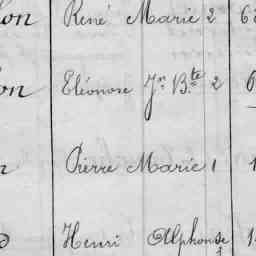 on René Marie 2
on Eléonore Jn Bte 2
Pierre Marie 1
Henri Alphonse